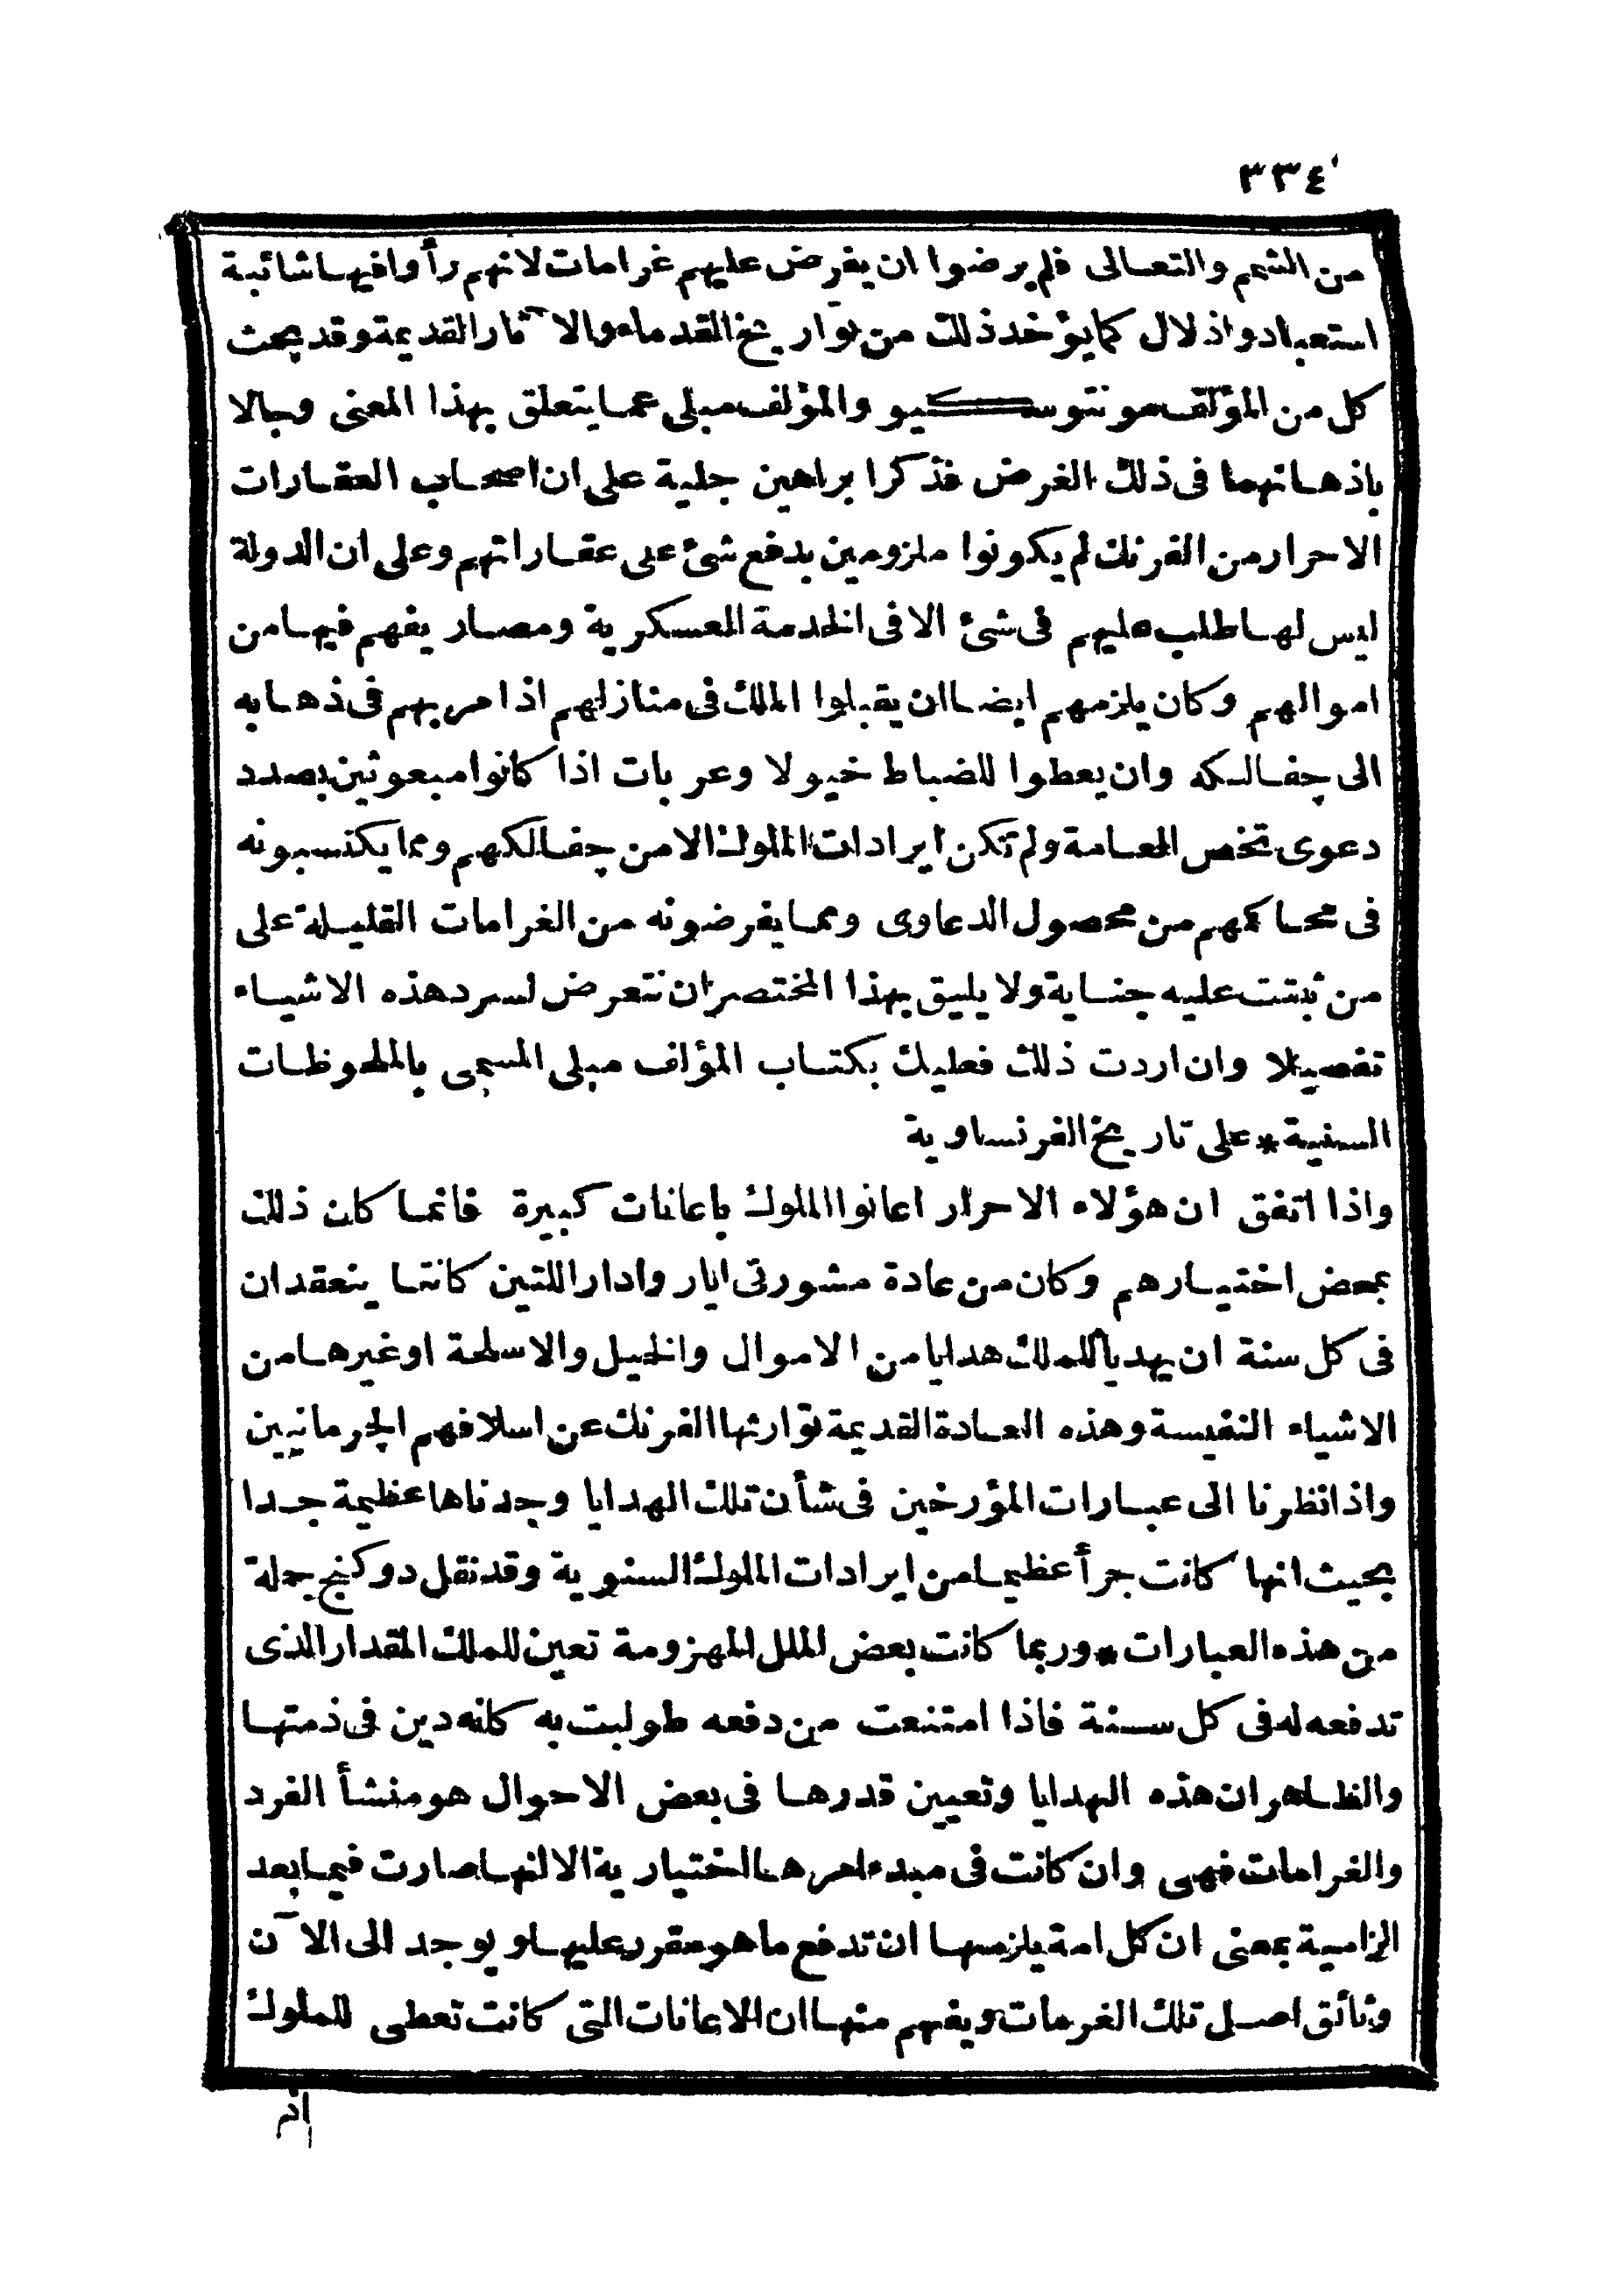 ٣٣٤
من الشمم والتعالى فلم يرضوا ان يفرض عليهم غرامات لانهم رأوا فيها شائبة
استعباد واذلال كما يؤخذ ذلك من تواريخ القدماء والآثار القديمة وقد بحث
كل من المؤلف مونتوسكيو والمؤلف مبلى عما يتعلق بهذا المعنى وجالا
باذهانهما فى ذلك الغرض فذكرا براهين جلية على ان اصحاب العقارات
الاحرار من الفرنك لم يكونوا ملزومين بدفع شئ على عقاراتهم وعلى ان الدولة
ليس لها طلب عليهم فى شئ الا فى الخدمة العسكرية ومصاريفهم فيها من
اموالهم وكان يلزمهم ايضا ان يقبلوا الملك فى منازلهم اذا مر بهم فى ذهابه
الى جفالكه وان يعطوا للضباط خيولا وعربات اذا كانوا مبعوثين بصدد
دعوى تخص العامة ولم تكن ايرادات الملوك الا من جفالكهم ومما يكتسبونه
فى محاكمهم من محصول الدعاوى ومما يفرضونه من الغرامات القليلة على
من ثبتت عليه جناية ولا يليق بهذا المختصر ان نتعرض لسرد هذه الاشياء
تفصيلا وان اردت ذلك فعليك بكتاب المؤلف مبلى المسمى بالملحوظات
السنية * على تاريخ الفرنساوية
واذا اتفق ان هؤلاء الاحرار اعانوا الملوك باعانات كبيرة فانما كان ذلك
بمحض اختيارهم وكان من عادة مشورتى ايار وادار اللتين كانتا ينعقدان
فى كل سنة ان يهديا للملك هدايا من الاموال والخيل والاسلحة او غيرها من
الاشياء النفيسة وهذه العادة القديمة توارثها الفرنك عن اسلافهم الجرمانيين
واذا نظرنا الى عبارات المؤرخين فى شأن تلك الهدايا وجدناها عظيمة جدا
بحيث انها كانت جزأ عظيما من ايرادات الملوك السنوية وقد نقل دوكنج جملة
من هذه العبارات * وربما كانت بعض الملل المهزومة تعين للملك المقدار الذى
تدفعه له فى كل سنة فاذا امتنعت من دفعه طولبت به كانه دين فى ذمتها
والظاهر ان هذه الهدايا وتعيين قدرها فى بعض الاحوال هو منشأ الفرد
والغرامات فهى وان كانت فى مبدء امرها اختيارية الا انها صارت فيما بعد
الزامية بمعنى ان كل امة يلزمها ان تدفع ما هو مقرر عليها ويوجد الى الآن
وثائق اصل تلك الغرمات ويفهم منها ان الاعانات التى كانت تعطى للملوك